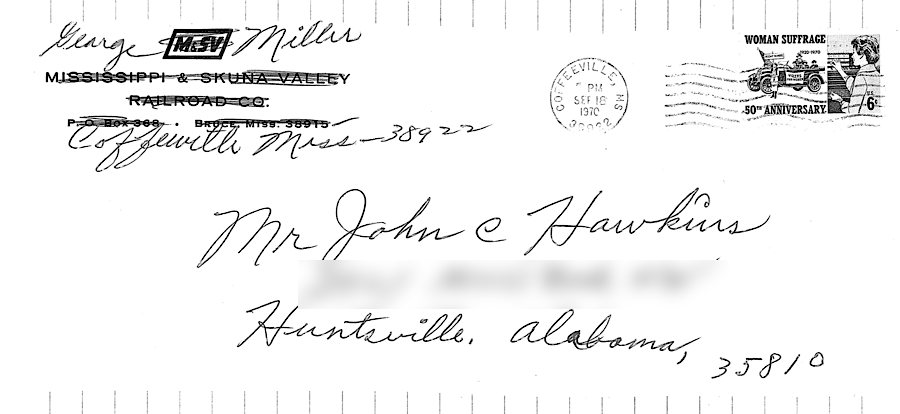 George M&SV Miller
MISSISSIPPI & SKUNA VALLEY
RAILROAD CO.
P. O. Box 366 . Bruce, Miss. 38915
Coffeeville Miss-38922
COFFEEVILLE, MS
PM
SEP 18
1970
38922
WOMAN SUFFRAGE
1920-1970
50TH ANNIVERSARY
U.S.
6c
Mr John C Hawkins
Huntsville, Alabama,
35810